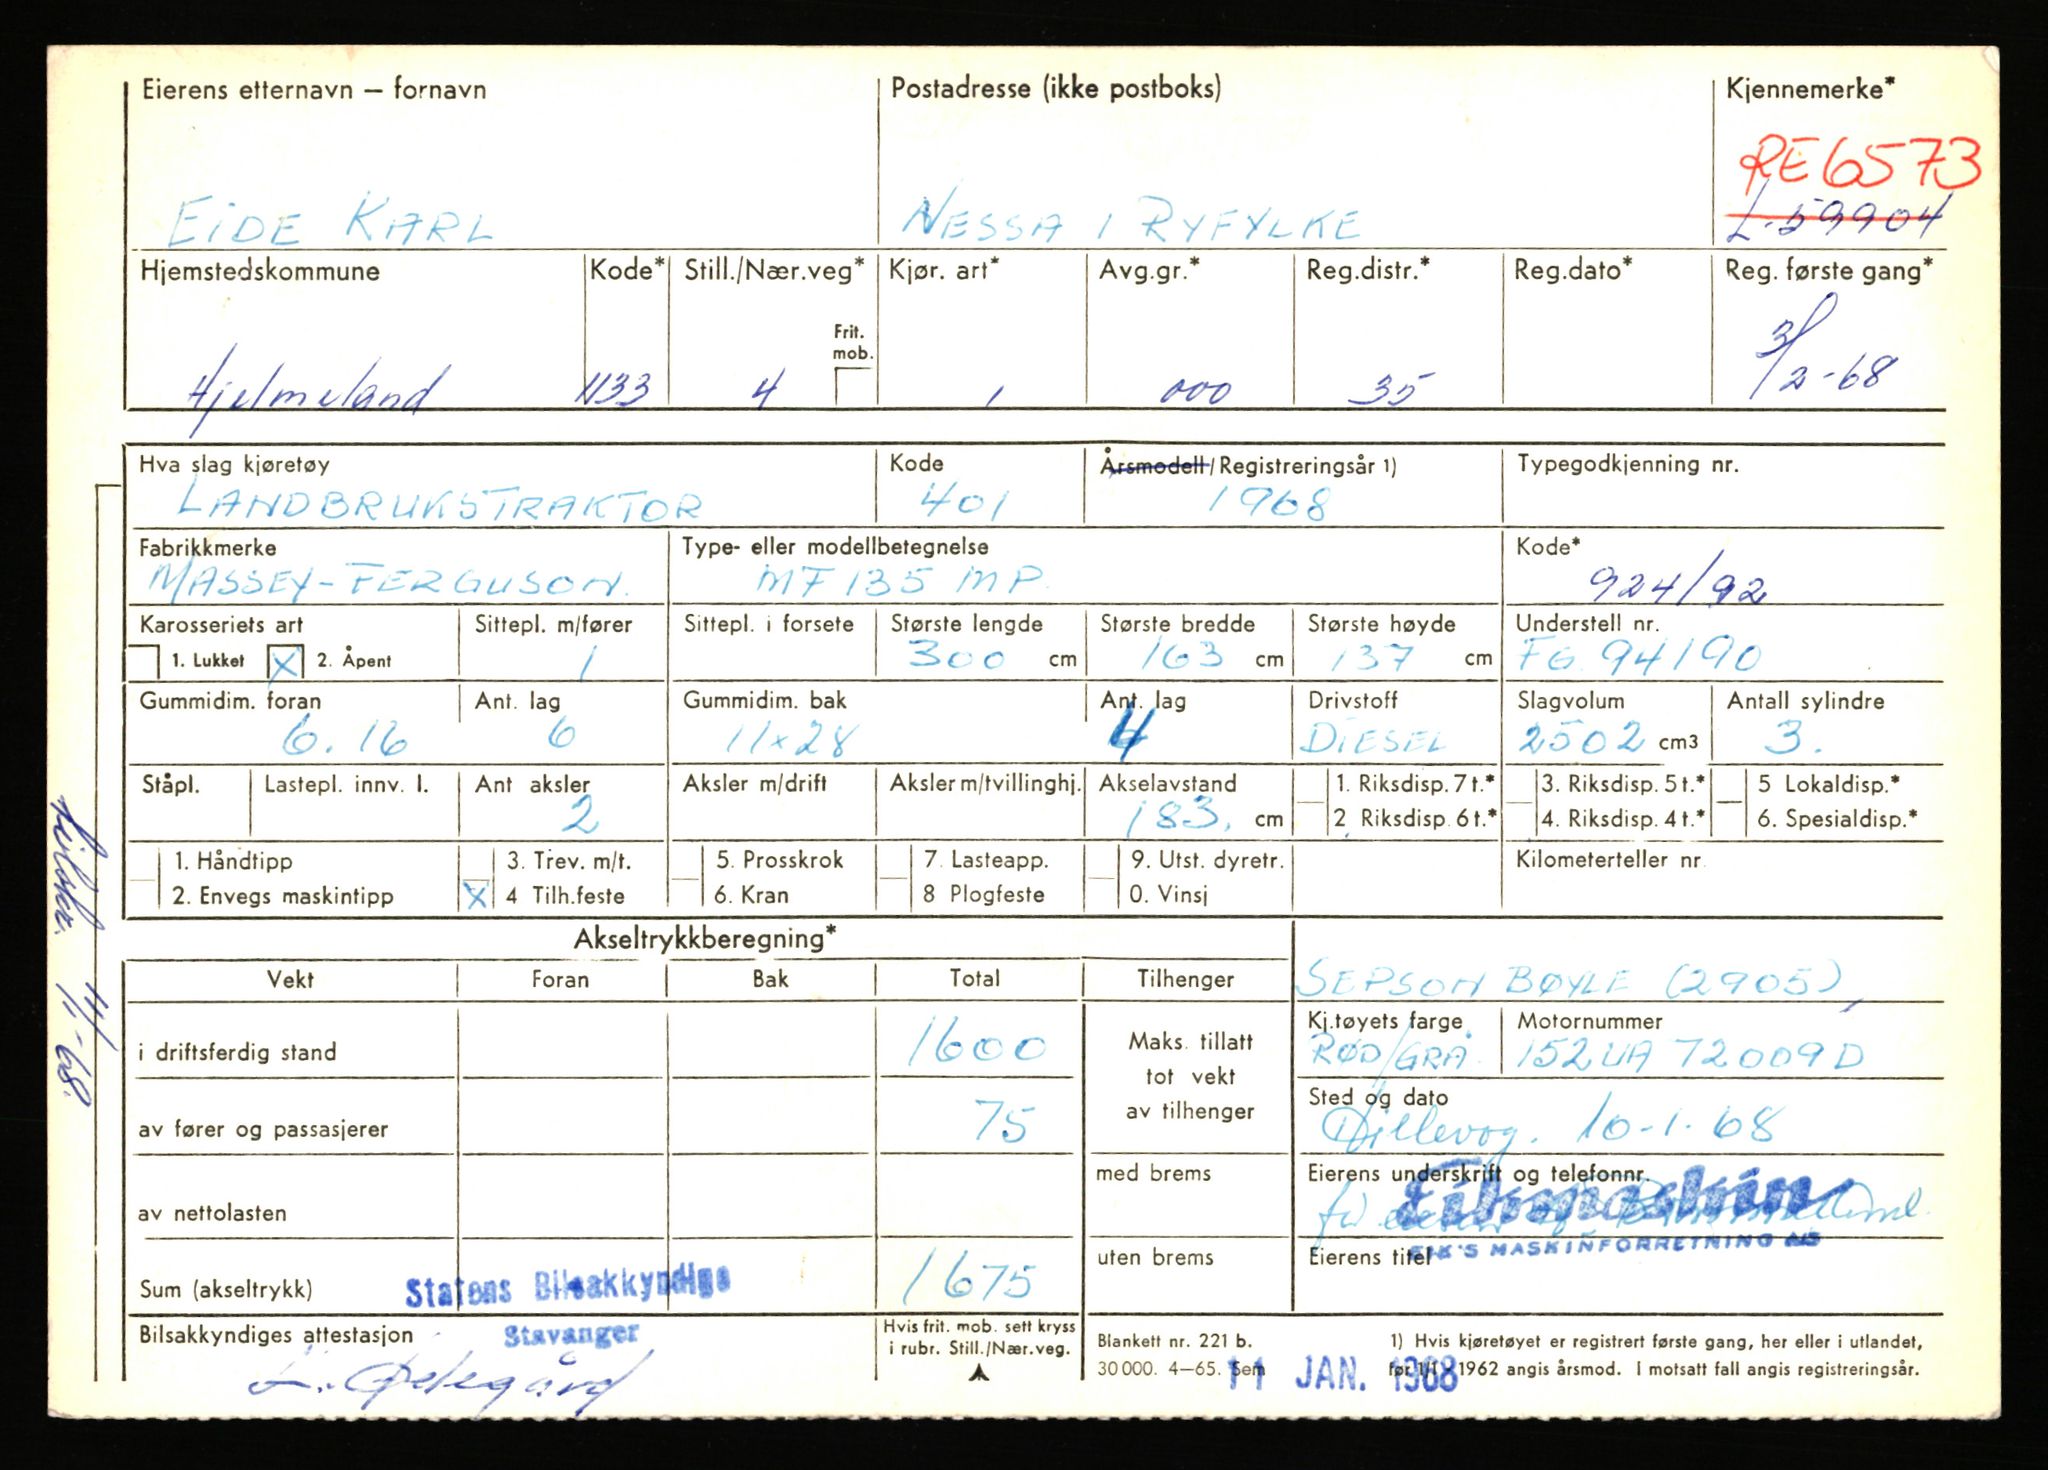 Eierens etternavn — fornavn Postadresse (ikke postboks) Kjennemerke*
RE6573
EIDE KARL NESSA I RYFYLKE L-59904
Hjemstedskommune Kode* Still./Nær.veg* Kjør. art* Avg.gr.* Reg.distr.* Reg.dato* Reg. første gang*
Frit.
mob.
Hjelmeland 1133 4 1 000 35 3/2-68
Hva slag kjøretøy Kode Årsmodell/Registreringsår 1) Typegodkjenning nr.
LANDBRUKSTRAKTOR 401 1968
Fabrikkmerke Type- eller modellbetegnelse Kode*
MASSEY-FERGUSON. MF 135 MP. 924/92
Karosseriets art Sittepl. m/fører Sittepl. i forsete Største lengde Største bredde Største høyde Understell nr.
1. Lukket X 2. Åpent 1 300 cm 163 cm 137 cm FG. 94190
Gummidim. foran Ant. lag Gummidim. bak Ant. lag Drivstoff Slagvolum Antall sylindre
6.16 6 11x28 4 DIESEL 2502 cm3 3.
Ståpl. Lastepl. innv. l. Ant aksler Aksler m/drift Aksler m/tvillinghj. Akselavstand 1. Riksdisp. 7 t.* 3. Riksdisp. 5 t.* 5 Lokaldisp.*
2 183. cm 2. Riksdisp. 6 t.* 4. Riksdisp. 4 t.* 6. Spesialdisp.*
1. Håndtipp 3. Trev. m/t. 5. Prosskrok 7. Lasteapp. 9. Utst. dyretr. Kilometerteller nr.
2. Envegs maskintipp X 4 Tilh.feste 6. Kran 8 Plogfeste 0. Vinsj
Akseltrykkberegning*
Vekt Foran Bak Total Tilhenger SEPSON BØYLE (2905),
Kj.tøyets farge Motornummer
i driftsferdig stand 1600 Maks. tillatt RØD/GRÅ. 152UA 72009D
tot vekt
Sted og dato
av fører og passasjerer 75 av tilhenger Hillevåg. 10-1.68
med brems Eierens underskrift og telefonnr.
av nettolasten Eikmaskin
uten brems Eierens titel EIK'S MASKINFORRETNING AS
Sum (akseltrykk) Statens Bilsakkyndige 1675
Bilsakkyndiges attestasjon Stavanger Hvis frit. mob. sett kryss i rubr. Still./Nær.veg.
Blankett nr. 221 b. 1) Hvis kjøretøyet er registrert første gang, her eller i utlandet,
30 000. 4—65. Sem før 1/1 - 1962 angis årsmod. I motsatt fall angis registreringsår.
11 JAN. 1968
11/1-68.